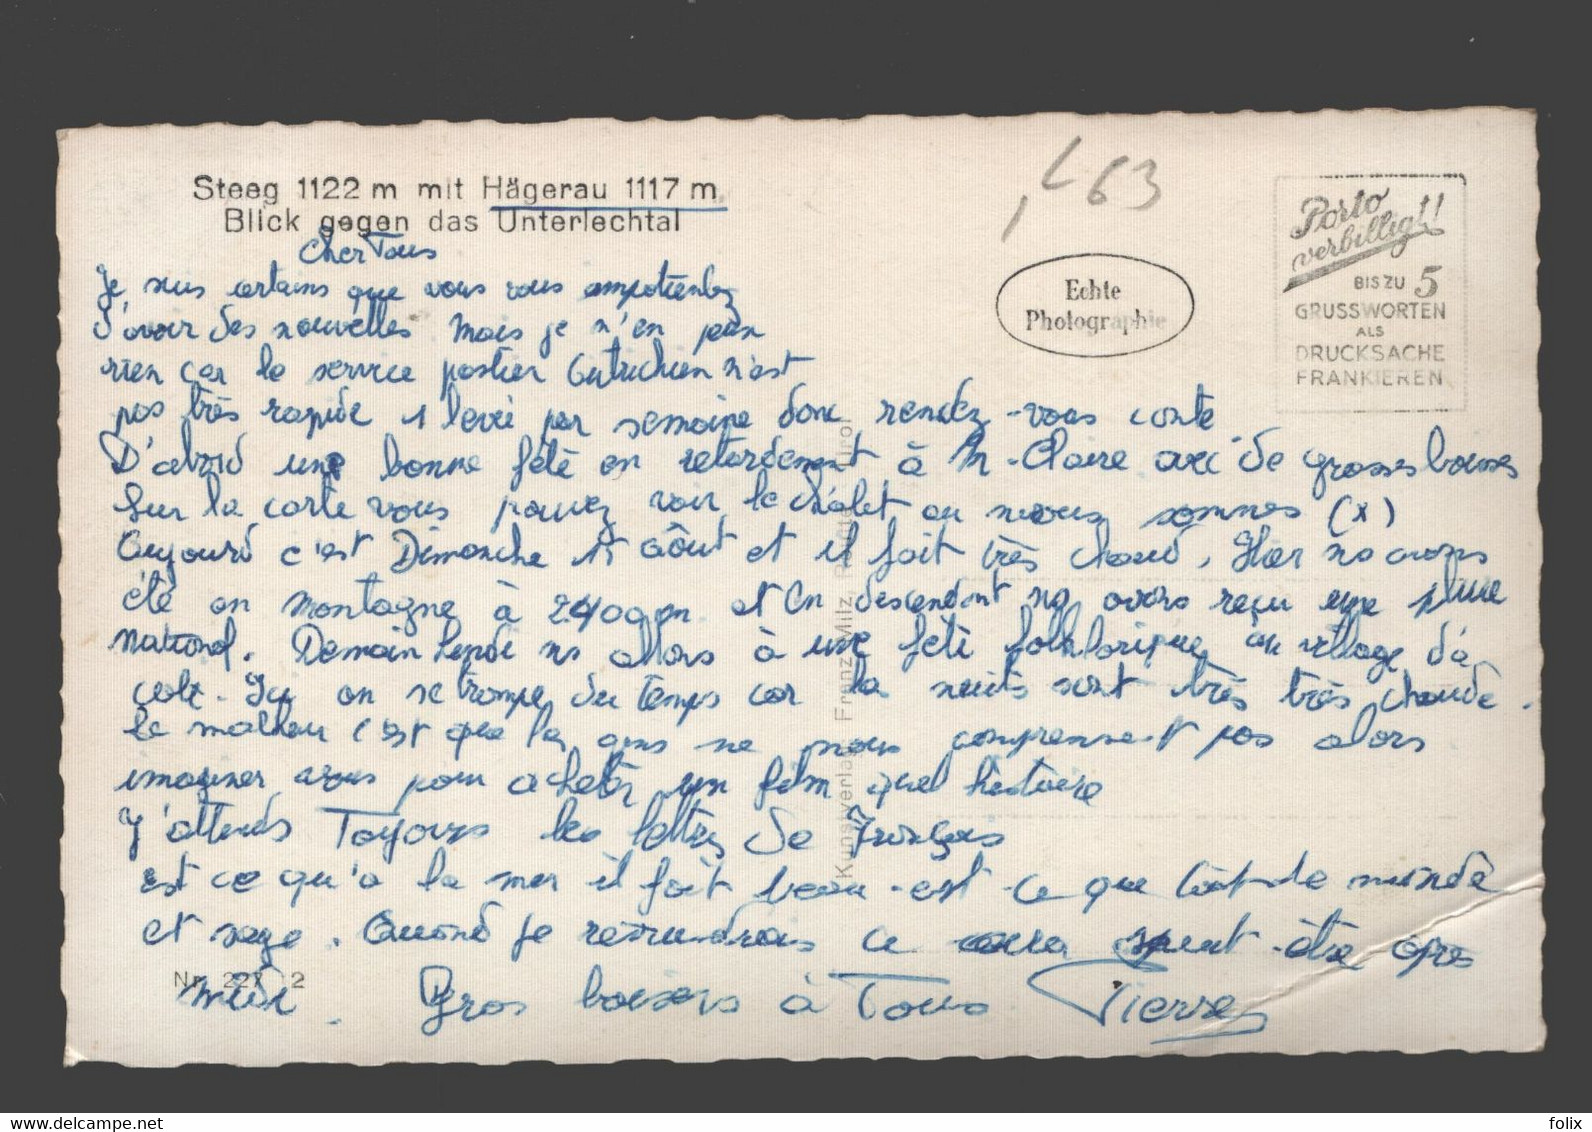 Steeg 1122 m mit Hägerau 1117 m
Blick gegen das Unterlechtal
,63
Echte
Photographie
Porto
verbilligt!
BIS ZU 5
GRUSSWORTEN
ALS
DRUCKSACHE
FRANKIEREN
Cher Tous
Je suis certains que vous vous
d'avoir des nouvelles mais je n'en peux
rien car le service postier Autrichien n'est
pas très rapide 1 levé par semaine donc rendez-vous conte
D'abord une bonne fête en retardement à M-Claire avec de grosses bouses
Sur la carte vous pouvez voir le châlet ou nous sommes (x)
Aujourd c'est Dimanche 15 août et il fait très chaud. Hier ns avons
été en montagne à 2400 m et en descendant ns avons reçu une pluie
national. Demain lundi ns allons à une fête folklorique au village d'à
coté. Ici on se trompe du temps car la nuits sont très très chaude.
Le malheur c'est que les gens ne nous comprennent pas alors
imaginer vous pour acheter un film quel histoire
J'attends Toujours les lettres de François
est ce qu'a la mer il fait beau - est - ce que tout le monde
et sage. Quand je reviendrais ce sera peut-être après
midi. Gros baisers à Tous Pierre
Nr. 227 2
Kunstverlag Franz Milz, Reutte, Tirol
folix